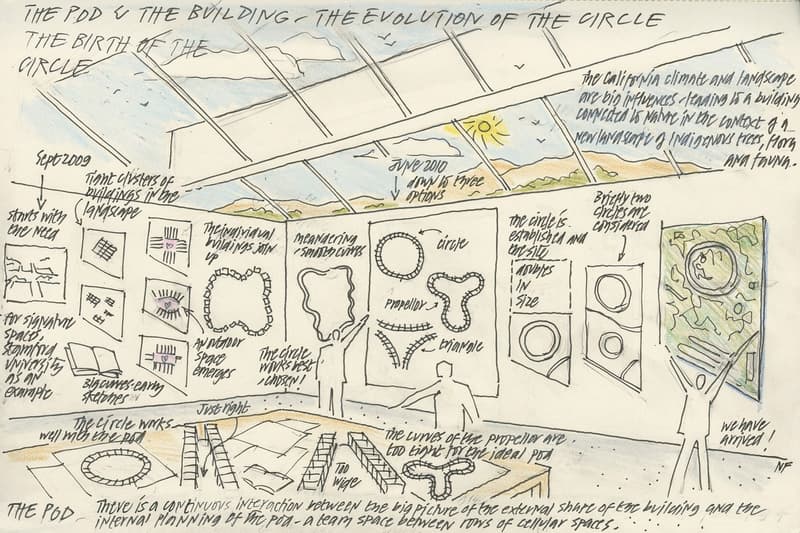 THE POD & THE BUILDING - THE EVOLUTION OF THE CIRCLE
THE BIRTH OF THE
CIRCLE
The California climate and landscape
are big influences - leading to a building
connected to nature in the context of a
new landscape of Indigenous trees, flora
and fauna.
Sept 2009
starts with
the need
for signature
space,
Stanford
University
as an
example
Tight clusters of
buildings in the
landscape
Big curves early
sketches
An outdoor
space
emerges
The individual
buildings join
up
meandering
smooth curves
The circle
works best
- chosen!
June 2010
down to three
options
circle
propellor
triangle
The circle is
established and
the site
doubles
in
size
Briefly two
circles are
considered
we have
arrived!
NF
The circle works
well with the pod
Just right
Too
wide
The curves of the propellor are
too tight for the ideal pod
THE POD - There is a continuous interaction between the big picture of the external shape of the building and the
internal planning of the pod - a team space between rows of cellular spaces.